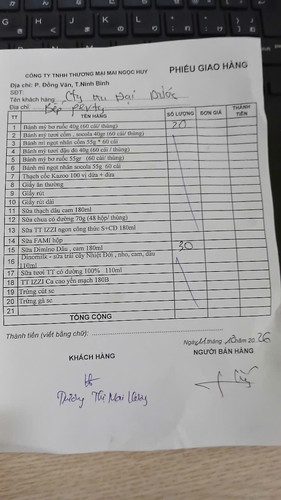 CÔNG TY TNHH THƯƠNG MẠI MAI NGỌC HUY
PHIẾU GIAO HÀNG
Địa chỉ: P. Đông Vân, T.Ninh Bình
SĐT:
Tên khách hàng: Cty Đại Dước
Địa chỉ: Bếp
TT TÊN HÀNG SỐ LƯỢNG ĐƠN GIÁ THÀNH TIỀN
1 Bánh mỳ be ruốc 40g (60 cái/ thùng) 20
2 Bánh mỳ tươi cốm , socola 40gr (60 cái/ thùng)
3 Bánh mì ngọt nhân cốm 55g * 60 cái
4 Bánh mỳ tươi đậu đỏ 40g (60 cái/ thùng)
5 Bánh mỳ be ruốc 55gr (60 cái/ thùng)
6 Bánh mì ngọt nhân socola 55g 60 cái
7 Thạch cốc Kazoo 100 vị dứa + dừa
8 Giấy ăn thường
9 Giấy rút
10 Giấy rút dài
11 Sữa thạch dâu cam 180ml
12 Sữa chua có đường 70g (48 hộp/ thùng)
13 Sữa TT IZZI ngon công thức S+CD 180ml
14 Sữa FAMI hộp
15 Sữa Dimino Dâu , cam 180ml 30
16 Dinomilk - sữa trái cây Nhiệt Đới , nho, cam, dâu 110ml
17 Sữa tươi TT có đường 100% 110ml
18 TT IZZI Ca cao yến mạch 180B
19 Trứng cút sc
20 Trứng gà sc
21
TỔNG CỘNG
Thành tiền (viết bằng chữ):
Ngày tháng năm 2026
KHÁCH HÀNG NGƯỜI BÁN HÀNG
Trương Thị Mai